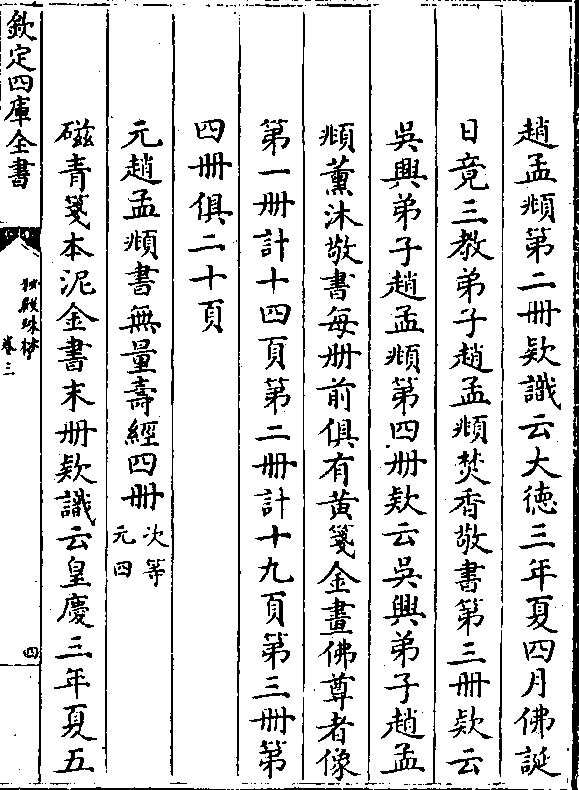 趙孟頫第二冊欵識云大德三年夏四月佛誕
日竟三教弟子趙孟頫焚香敬書第三冊欵云
吳興弟子趙孟頫第四冊欵云吳興弟子趙孟
頫薰沐敬書每冊前俱有黃箋金畫佛尊者像
第一冊計十四頁第二冊計十九頁第三冊第
四冊俱二十頁
元趙孟頫書無量壽經四冊 次等 元四
磁青箋本泥金書末冊欵識云皇慶三年夏五
欽定四庫全書
秘殿珠林
卷三
四